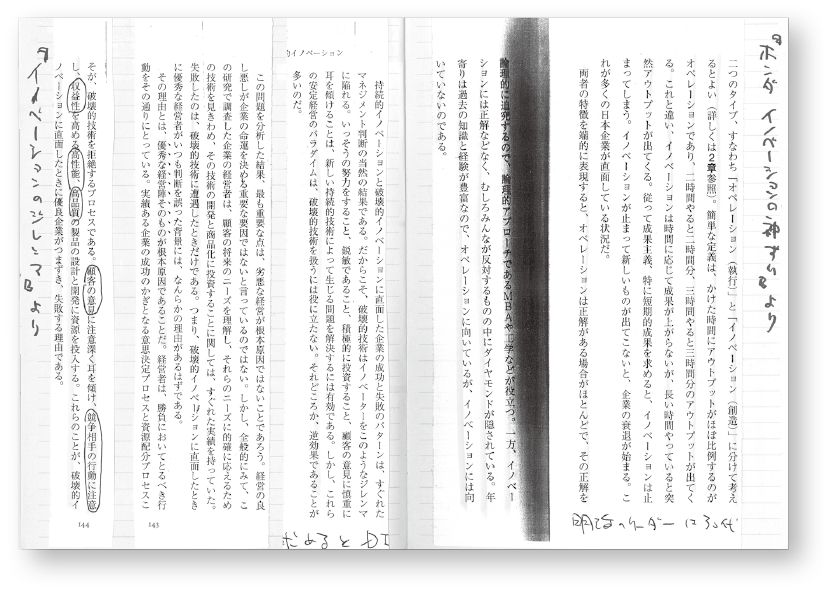 『ホンダ イノベーションの神ずい』より
二つのタイプ、すなわち「オペレーション（執行）」と「イノベーション（創造）」に分けて考え
るとよい（詳しくは2章参照）。簡単な定義は、かけた時間にアウトプットがほぼ比例するのが
オペレーションであり、二時間やると二時間分、三時間やると三時間分のアウトプットが出てく
る。これと違い、イノベーションは時間に応じて成果が上がらないが、長い時間やっていると突
然アウトプットが出てくる。従って成果主義、特に短期的成果を求めると、イノベーションは止
まってしまう。イノベーションが止まって新しいものが出てこないと、企業の衰退が始まる。こ
れが多くの日本企業が直面している状況だ。
両者の特徴を端的に表現すると、オペレーションは正解がある場合がほとんどで、その正解を
論理的に追究するので、論理的アプローチであるMBAや工学などが役立つ。一方、イノベー
ションには正解などなく、むしろみんなが反対するものの中にダイヤモンドが隠されている。年
寄りは過去の知識と経験が豊富なので、オペレーションに向いているが、イノベーションには向
いていないのである。
的イノベーション
持続的イノベーションと破壊的イノベーションに直面した企業の成功と失敗のパターンは、すぐれた
マネジメント判断の当然の結果である。だからこそ、破壊的技術はイノベーターをこのようなジレンマ
に陥れる。いっそうの努力をすること、鋭敏であること、積極的に投資すること、顧客の意見に慎重に
耳を傾けることは、新しい持続的技術によって生じる問題を解決するには有効である。しかし、これら
の安定経営のパラダイムは、破壊的技術を扱うには役に立たない。それどころか、逆効果であることが
多いのだ。
この問題を分析した結果、最も重要な点は、劣悪な経営が根本原因ではないことであろう。経営の良
し悪しが企業の命運を決める重要な要因ではないと言っているのではない。しかし、全般的にみて、こ
の研究で調査した企業の経営者は、顧客の将来のニーズを理解し、それらのニーズに的確に応えるため
の技術を見きわめ、その技術の開発と商品化に投資することに関しては、すぐれた実績を持っていた。
失敗したのは、破壊的技術に遭遇したときだけである。つまり、破壊的イノベーションに直面したとき
に優秀な経営者がいつも判断を誤った背景には、なんらかの理由があるはずである。
その理由とは、優秀な経営陣そのものが根本原因であることだ。経営者は、勝負においてとるべき行
動をその通りにとっている。実績ある企業の成功のかぎとなる意思決定プロセスと資源配分プロセスこ
143
そが、破壊的技術を拒絶するプロセスである。顧客の意見に注意深く耳を傾け、競争相手の行動に注意
し、収益性を高める高性能、高品質の製品の設計と開発に資源を投入する。これらのことが、破壊的イ
ノベーションに直面したときに優良企業がつまずき、失敗する理由である。
144
『イノベーションのジレンマ』より